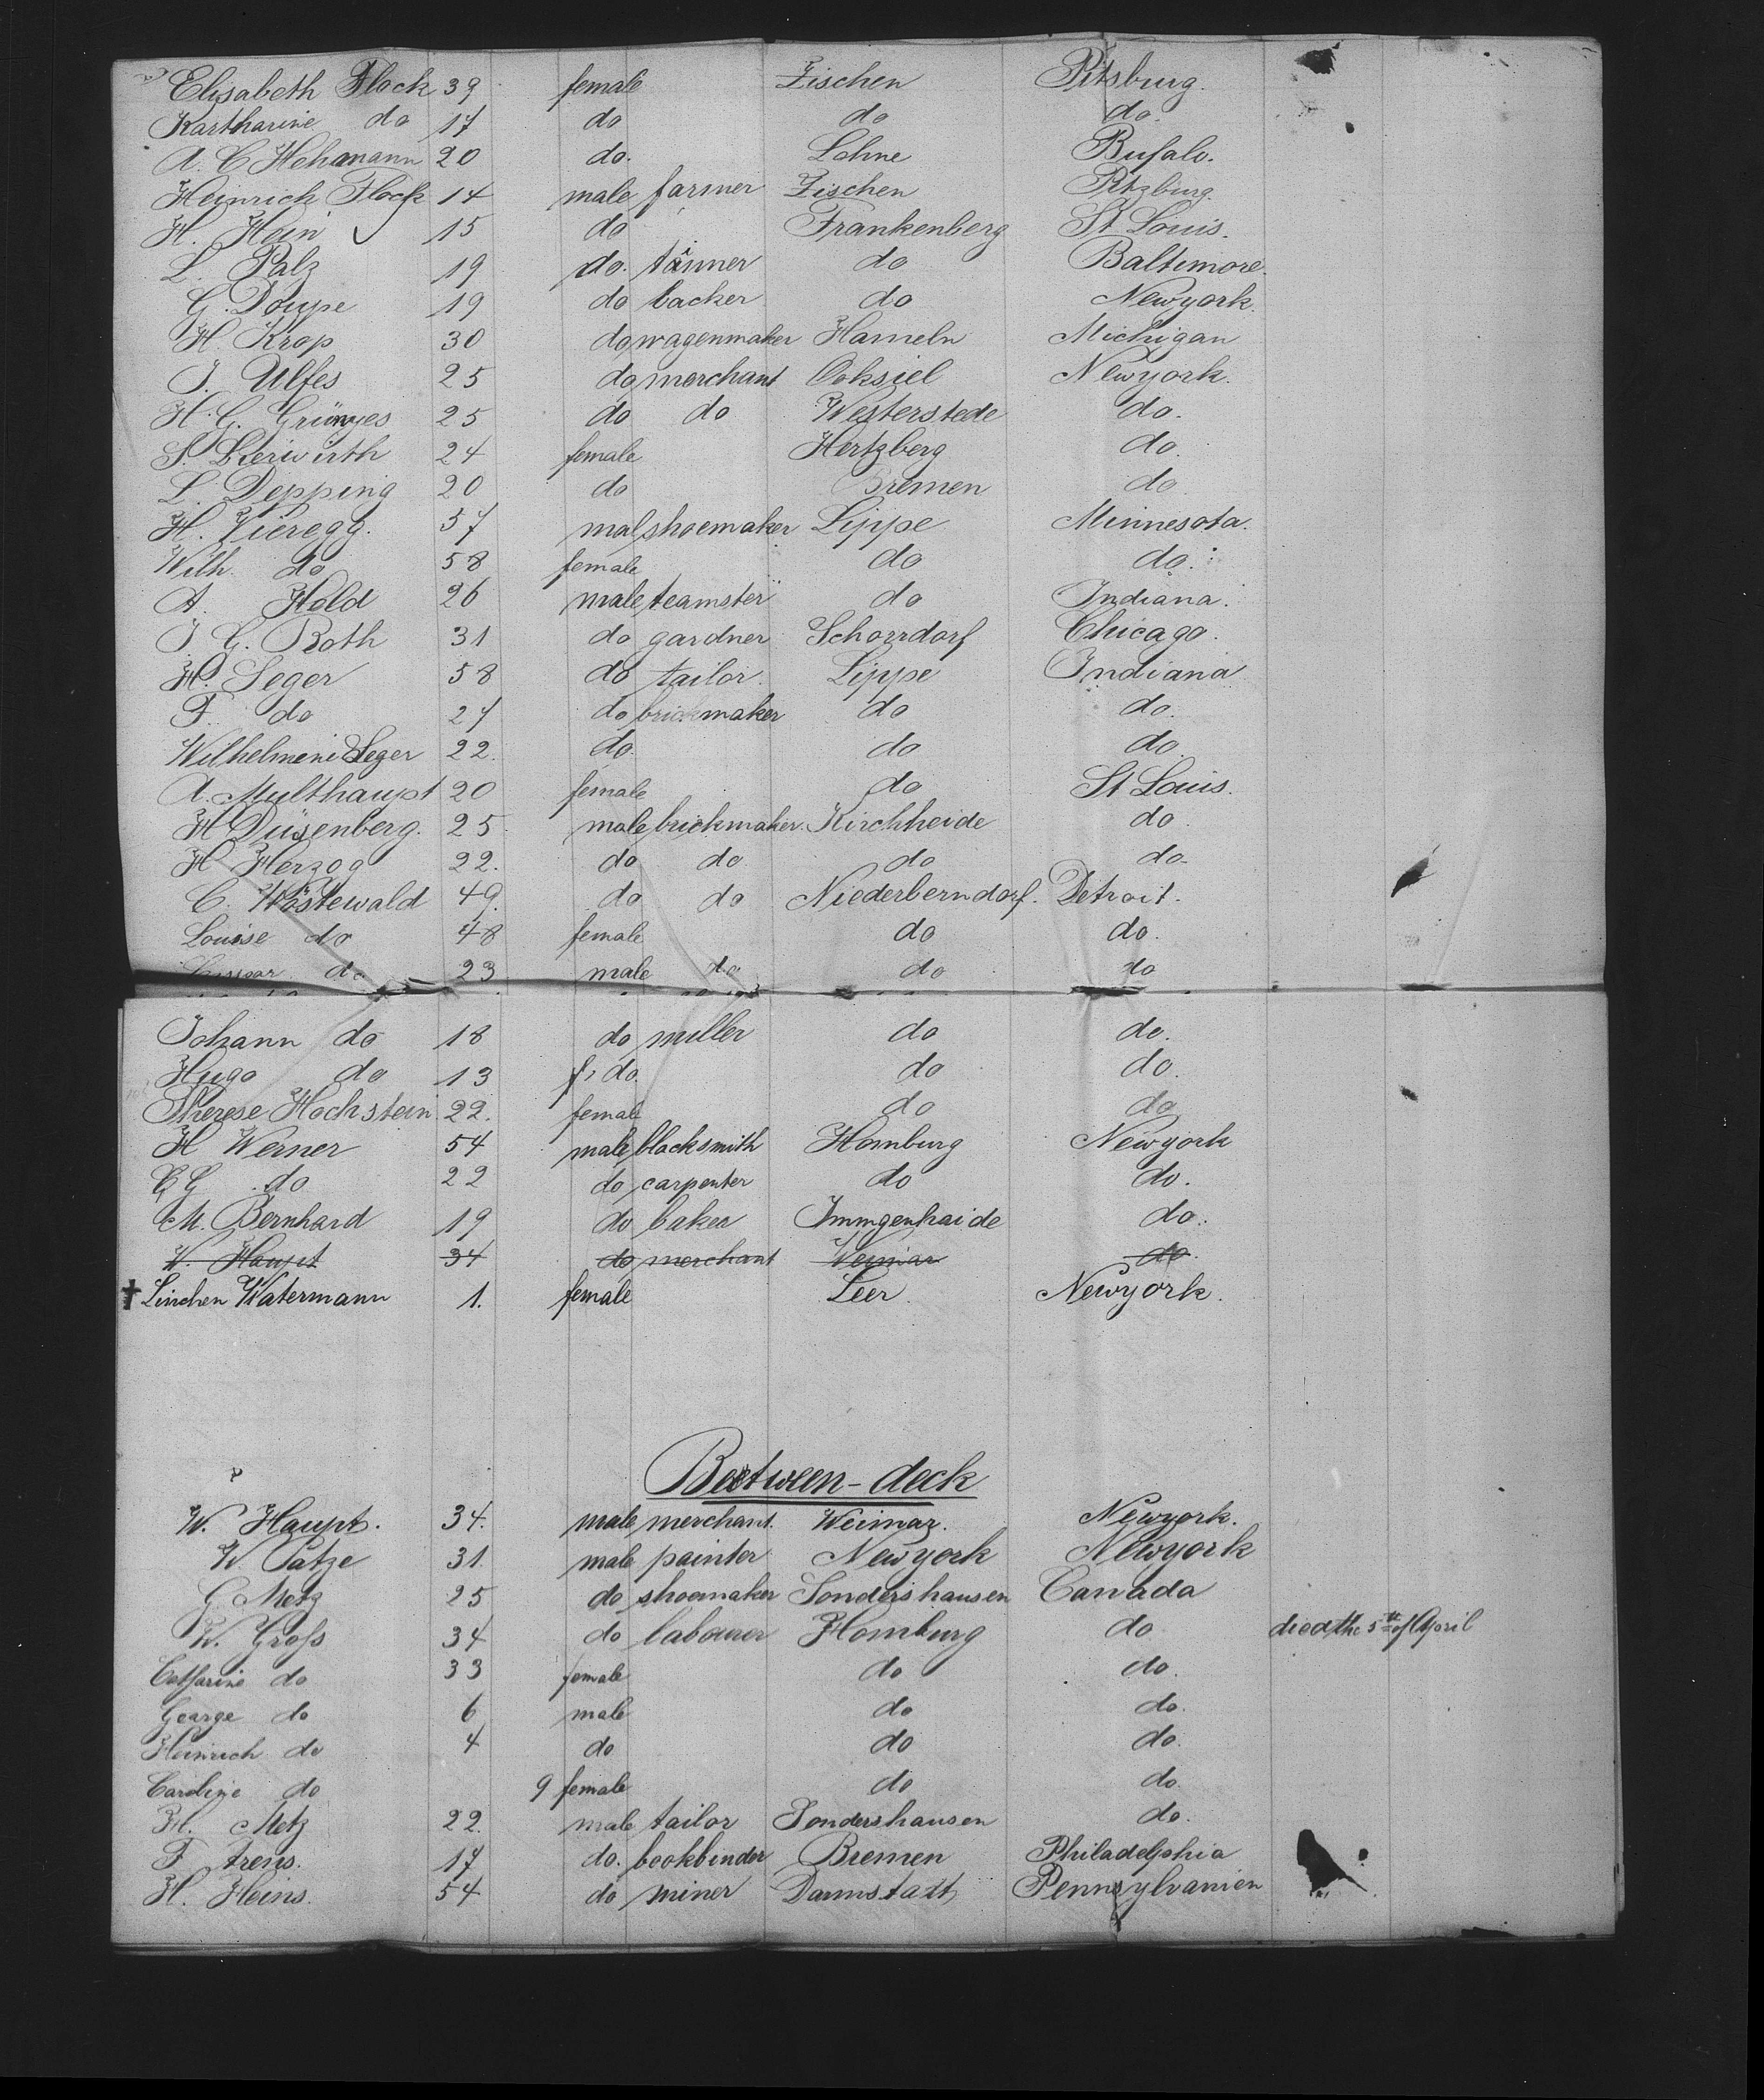 Elisabeth Flock 39 female Zischen Pitsburg.
Kartharine do 17 do do do.
A. C. Hehmann 20 do. Lohne Bufalo.
Heinrich Flock 14 male farmer Zischen Pitzburg.
H. Hein 15 do Frankenberg St Louis.
L. Palz 19 do. tanner do Baltimore.
G. Doupe 19 do backer do Newyork.
H. Krop 30 do wagenmaker Hameln Michigan
J. Ulfes 25 do merchant Ooksiel Newyork.
H. G. 25 do do Westerstede do.
S. Bierwirth 24 female Hertzberg do.
L. Depping 20 do Bremen do
H. Vieregg. 57 mal shoemaker Lippe Minnesota.
Wilh. do 58 female do do.
A. Hold 26 male teamster do Indiana.
J. G. Roth 31 do gardner Schorrdorf Chicago.
H. Seger 58 do tailor. Lippe Indiana
F. do 27 do brickmaker do do.
Wilhelmine Seger 22. do. do do
A. Multhaupt 20 female do St Louis.
H Düsenberg. 25 male brickmaker. Kirchheide do
H Herzog 22. do do do do
C. Wöstewald 49. do do Niederberndorf. Detroit.
Louise do 48 female do do.
do 23 male do do do
Johann do 18 do miller do do.
Hugo do 13 do. do do.
Therese Hochstein 22. female do do
H Werner 54 male blacksmith Homburg Newyork
do 22 do carpenter do do.
M. Bernhard 19 do baker Immgenhaide do.
W. Haupt 34 do merchant Weimar do.
† Linchen Watermann 1. female Leer Newyork.
Beetween-deck
W. Haupt. 34. male merchant. Weimar. Newyork.
W. Patze 31. male painter Newyork Newyork
G. Metz 25 do shoemaker Sondershausen Canada
W. Groß 34 do labourer Homburg do died the 5th of April
Catharine do 33 female do do.
George do 6 male do do.
Heinrich do 4 do do do.
Caroline do 9 female do do.
H. Metz 22. male tailor Sondershausen do.
F Trens. 17 do. bookbinder Bremen Philadelphia
H. Heins. 54 do miner Darmstadt Pennsylvanien